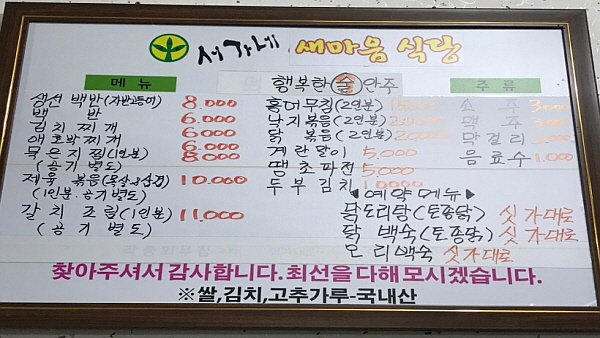 서가네 새마음 식당
메뉴
생선 백반(자반고등어) 8.000
백반 6.000
김치찌개 6000
애호박찌개 6.000
묵은지찜(1인분) 8000
(공기별도)
제육볶음(통살오삼겹) 10.000
(1인분.공기별도)
갈치조림(1인분) 11,000
(공기별도)
행복한 술 안주
홍어무침(2인분) 15000
낙지볶음(2인분)
닭볶음(2인분)
계란말이 5,000
땡초파전 5,000
두부김치 10000
주류
소주 3000
맥주 3000
막걸리
음료수 1.000
◀예약메뉴▶
닭도리탕(토종닭) 싯가대로
닭백숙(토종닭) 싯가대로
오리백숙 싯가대로
찾아주셔서 감사합니다. 최선을 다해 모시겠습니다.
※쌀,김치,고추가루-국내산